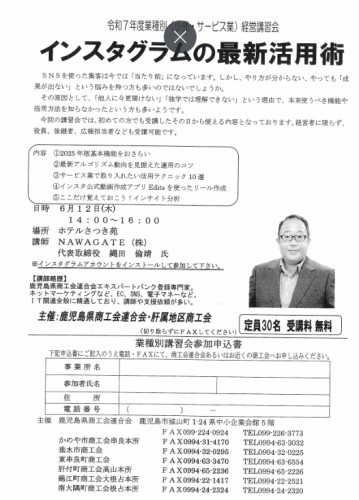 令和7年度業種別 ・サービス業）経営講習会
インスタグラムの最新活用術
ＳＮＳを使った集客は今では「当たり前」になっています。しかし、やり方が分からない、やっても「成
果が出ない」という悩みを持つ方も多いのではないでしょうか。
その原因として、「他人に今更聞けない」「独学では理解できない」という理由で、本来使うべき機能や
活用方法を知らなかったという方も多いようです。
今回の講習会では、初めての方でも受講したその日から使える内容となっております。経営者に限らず、
役員、後継者、広報担当者なども受講可能です。
内容 ①2025年版基本機能をおさらい
②最新アルゴリズム動向を見据えた運用のコツ
③サービス業で取り入れたい活用テクニック10選
④インスタ公式動画作成アプリEditsを使ったリール作成
⑤ここだけ覚えておこう！インサイト分析
日時 ６月１２日(木)
１４：００～１６：００
場所 ホテルさつき苑
講師 ＮＡＷＡＧＡＴＥ（株）
代表取締役 縄田 倫靖 氏
※インスタグラムアカウントをインストールして参加して下さい。
【講師略歴】
鹿児島県商工会連合会エキスパートバンク登録専門家。
ネットマーケティングなど、EC、SNS、電子マネーなど、
ＩＴ関連全般に精通しており、講師や支援依頼が多い。
主催：鹿児島県商工会連合会・肝属地区商工会
定員30名 受講料 無料
（切り取らずにＦＡＸしてください）
業種別講習会参加申込書
下記申込書にご記入のうえ電話・ＦＡＸにて、商工会連合会あるいはお近くの商工会へお申し込みください。
事業所名
参加者氏名
住所
電話番号 （ ）－
主催 鹿児島県商工会連合会 鹿児島市城山町1-24県中小企業会館５階
ＦＡＸ099-224-0924 TEL099-226-3773
かのや市商工会串良本所 ＦＡＸ0994-31-4170 TEL0994-63-3032
垂水市商工会 ＦＡＸ0994-32-3295 TEL0994-32-0225
東串良町商工会 ＦＡＸ0994-63-3470 TEL0994-63-6554
肝付町商工会高山本所 ＦＡＸ0994-65-2236 TEL0994-65-2226
錦江町商工会大根占本所 ＦＡＸ0994-22-1424 TEL0994-22-0521
南大隅町商工会根占本所 ＦＡＸ0994-24-2324 TEL0994-24-2320